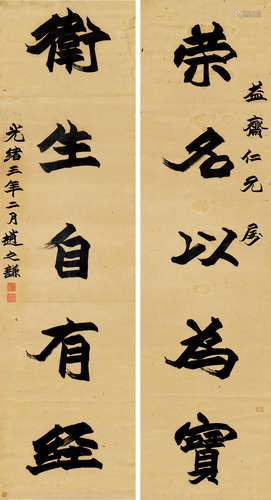 益齋仁兄属
荣名以為寶
衛生自有経
光緒三年二月趙之謙